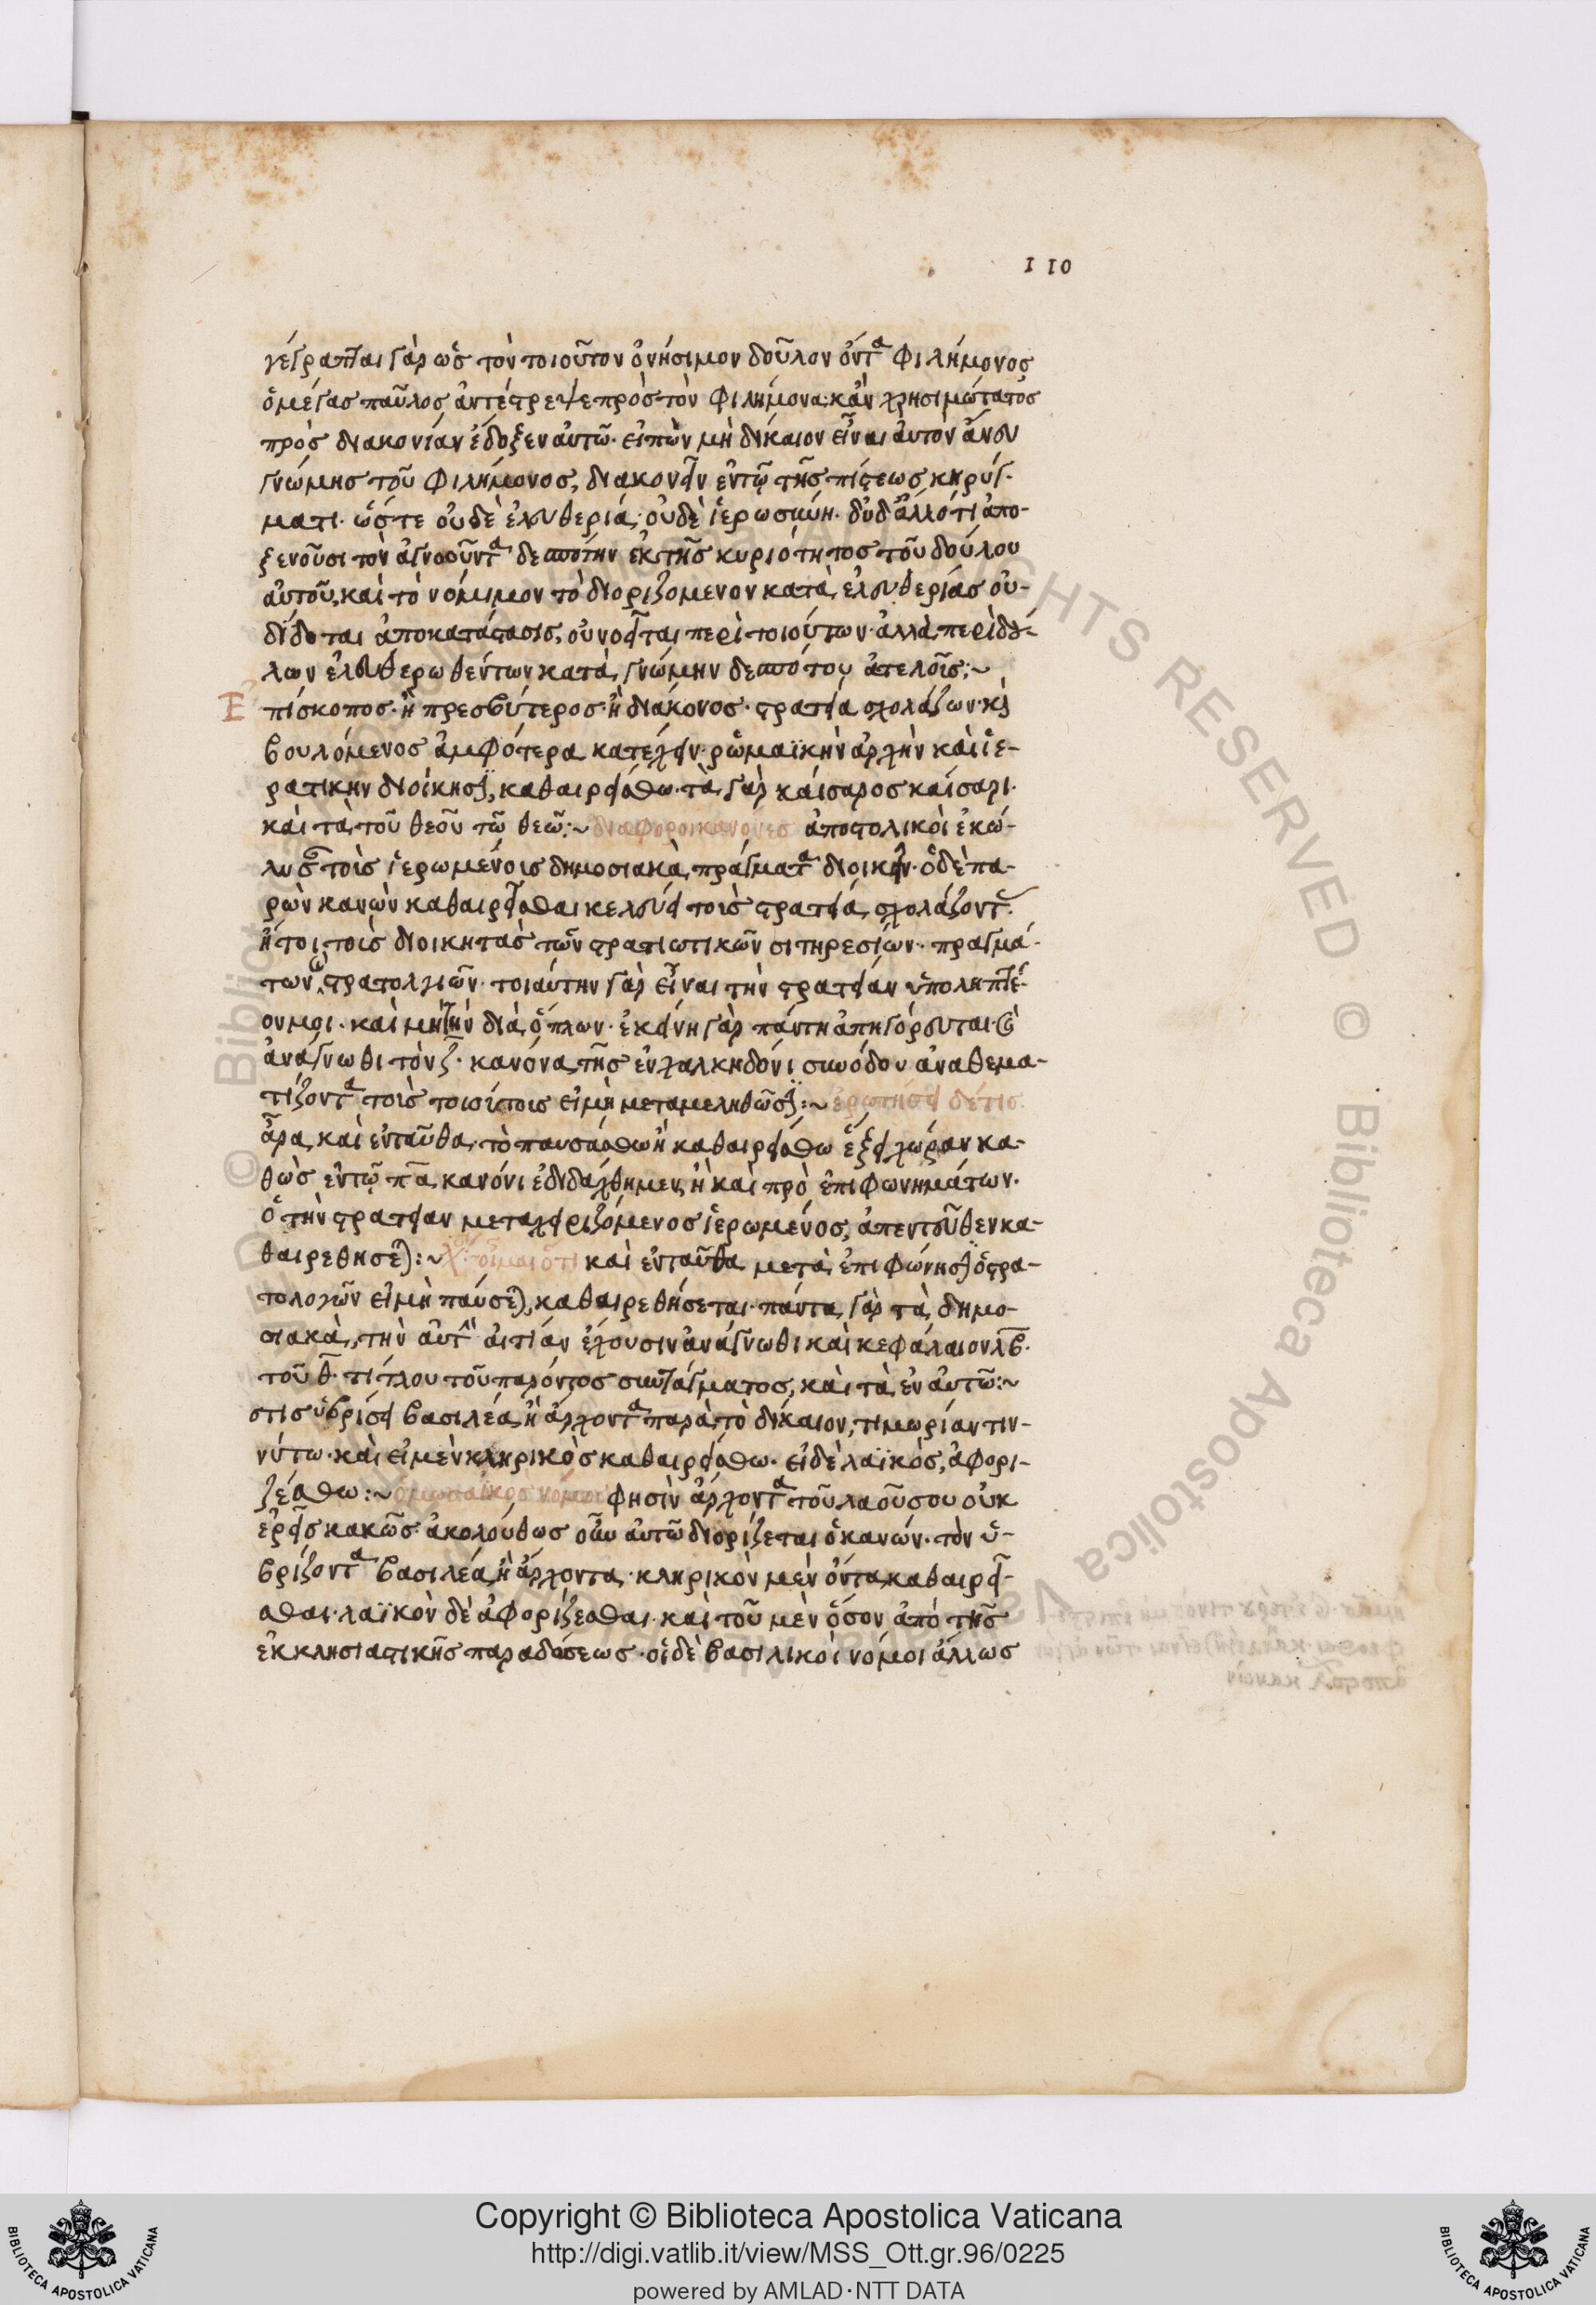 110
γέγραπται γὰρ ὡς τὸν τοιοῦτον ὀνήσιμον δοῦλον ὄντα Φιλήμονος
ὁ μέγας παῦλος ἀντέστρεψε πρὸς τὸν Φιλήμονα· κἂν χρησιμώτατος
πρὸς διακονίαν ἔδοξεν αὐτῶ· εἰπὼν μὴ δίκαιον εἶναι αὐτὸν ἄνευ
γνώμης τοῦ Φιλήμονος, διακονεῖν ἐν τῶ τῆς πίστεως κηρύγ-
ματι· ὥστε οὐδὲ ἐλευθερία, οὐδὲ ἱερωσύνη· οὐδ' ἄλλό τι ἀπο-
ξενοῦσι τὸν ἀγνοοῦντα δεσπότην ἐκ τῆς κυριότητος τοῦ δούλου
αὐτοῦ, καὶ τὸ νόμιμον τὸ διοριζόμενον κατὰ ἐλευθερίας οὐ-
δίδοται ἀποκατάστασις, οὐ νοεῖται περὶ τοιούτων· ἀλλὰ περὶ δού-
λων ἐλευθερωθέντων κατὰ γνώμην δεσπότου ἀτελοῖς:~
Ἐπίσκοπος· ἢ πρεσβύτερος ἢ διάκονος· στρατεία σχολάζων· καὶ
βουλόμενος ἀμφότερα κατέχειν· ῥωμαϊκὴν ἀρχὴν καὶ ἱε-
ρατικην διοίκησιν, καθαιρείσθω· τὰ γὰρ καίσαρος καίσαρι·
καὶ τὰ τοῦ θεοῦ τῶ θεῶ:~ διάφοροι κανόνες ἀποστολικοὶ ἐκώ-
λυσαν τοῖς ἱερωμένοις δημοσιακὰ πράγματα διοικεῖν· ὁ δὲ πα-
ρὼν κανὼν καθαιρεῖσθαι κελεύει τοὺς στρατεία σχολάζοντας·
ἤτοι τοὺς διοικητὰς τῶν στρατιωτικῶν σιτηρεσίων· πραγμά-
των στρατολογιῶν· τοιαύτην γὰρ εἶναι τὴν στρατείαν ὑποληπτέ-
ον μοι· καὶ μὴ τὴν διὰ ὅπλων· ἐκείνη γὰρ πάντη ἀπηγόρευται· καὶ
ἀνάγνωθι τὸν ζ· κανόνα τῆς ἐν χαλκηδόνι συνόδου ἀναθεμα-
τίζοντα τοὺς τοιούτους εἰ μὴ μεταμεληθῶσιν:~ ἐρωτήσει δέ τις
ἆρα καὶ ἐνταῦθα τὸ παυσάσθω ἢ καθαιρείσθω ἕξει χώραν κα-
θὼς ἐν τῶ πα κανόνι ἐδιδάχθημεν, ἢ καὶ πρὸ ἐπιφωνημάτων·
ὁ τὴν στρατείαν μεταχειριζόμενος ἱερωμένος, ἀπεντεῦθεν κα-
θαιρεθήσεται:~ οἶμαι ὅτι καὶ ἐνταῦθα μετὰ ἐπιφώνησιν ὁ στρα-
τολογῶν εἰ μὴ παύσεται, καθαιρεθήσεται· πάντα γὰρ τὰ δημο-
σιακὰ, τὴν αὐτὴν αἰτίαν ἔχουσιν ἀνάγνωθι καὶ κεφάλαιον λβ·
τοῦ θ· τίτλου τοῦ παρόντος συντάγματος, καὶ τὰ ἐν αὐτῶ:~
στις ὑβρίσει βασιλέα ἢ ἄρχοντα παρὰ τὸ δίκαιον, τιμωρίαν τιν-
νύτω· καὶ εἰ μὲν κληρικὸς καθαιρείσθω· εἰ δὲ λαϊκὸς, ἀφορι-
ζέσθω:~ ὁ μωσαϊκὸς νόμος φησὶν ἄρχοντα τοῦ λαοῦ σου οὐκ
ἐρεῖς κακῶς· ἀκολούθως οὖν αὐτῶ διορίζεται ὁ κανών· τὸν ὑ-
βρίζοντα βασιλέα ἢ ἄρχοντα· κληρικὸν μὲν ὄντα, καθαιρεῖ-
σθαι· λαϊκὸν δὲ ἀφορίζεσθαι· καὶ τοῦ μὲν ὅσον ἀπὸ τῆς
ἐκκλησιαστικῆς παραδόσεως· οἱ δὲ βασιλικοὶ νόμοι ἄλλως
© Biblioteca Apostolica Vaticana
ALL RIGHTS RESERVED
Copyright © Biblioteca Apostolica Vaticana
http://digi.vatlib.it/view/MSS_Ott.gr.96/0225
powered by AMLAD·NTT DATA
BIBLIOTECA APOSTOLICA VATICANA
BIBLIOTECA APOSTOLICA VATICANA